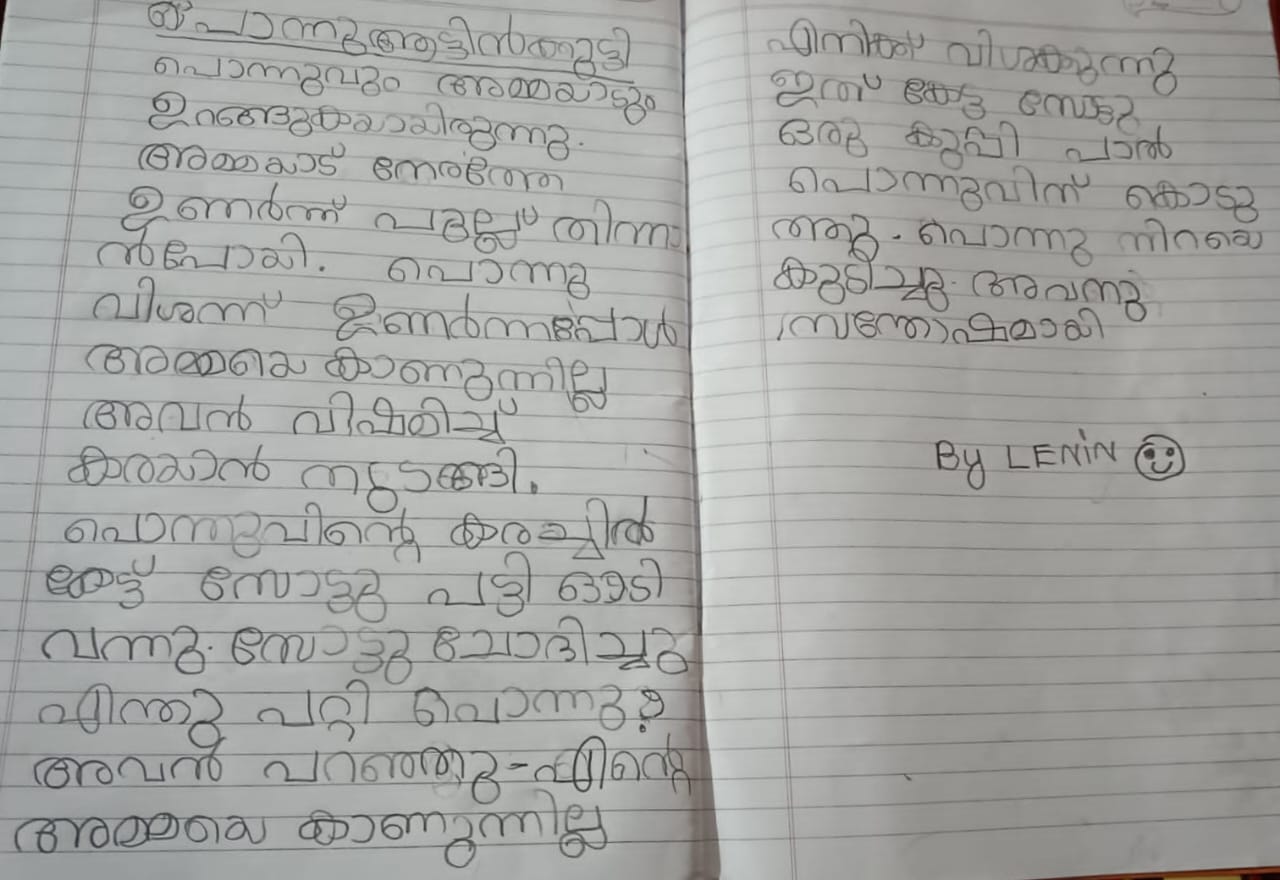 പൊന്നുആട്ടിൻകുട്ടി
പൊന്നുവും അമ്മയാടും
ഉറങ്ങുകയായിരുന്നു.
അമ്മയാട് നേരത്തേ
ഉണർന്ന് പുല്ല് തിന്നാ
ൻപോയി. പൊന്നു
വിശന്ന് ഉണർന്നപ്പോൾ
അമ്മയെ കാണുന്നില്ല
അവൻ വിഷമിച്ച്
കരയാൻ തുടങ്ങി.
പൊന്നുവിന്റെ കരച്ചിൽ
കേട്ട് സോട്ടു പട്ടി ഓടി
വന്നു. സോട്ടു ചോദിച്ചു
എന്തു പറ്റി പൊന്നു?
അവൻ പറഞ്ഞു-എന്റെ
അമ്മയെ കാണുന്നില്ല
എനിക്ക് വിശക്കുന്നു
ഇത് കേട്ട സോട്ടു
ഒരു കുപ്പി പാൽ
പൊന്നുവിന് കൊടു
ത്തു. പൊന്നു നിറയെ
കുടിച്ചു. അവനു
സന്തോഷമായി
By LENiN